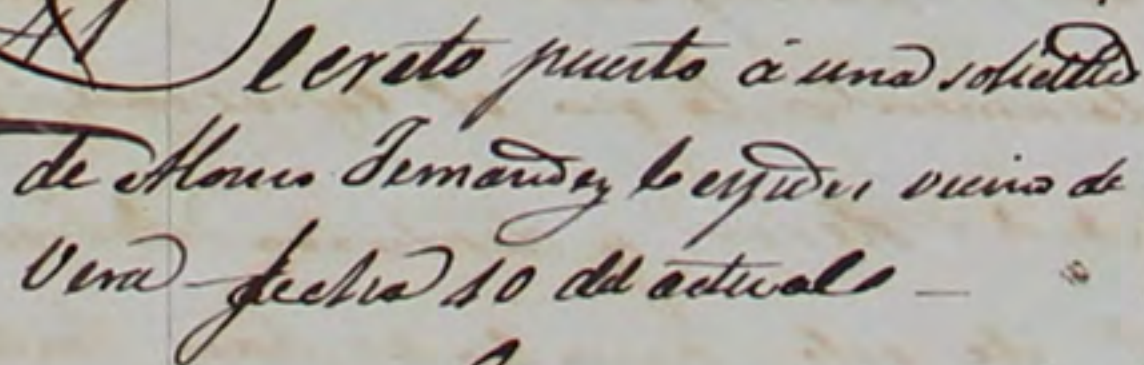 Decreto puesto á una solicitud
de Alonso Fernandez Cespedes vecino de
Vera fecha 10 del actual